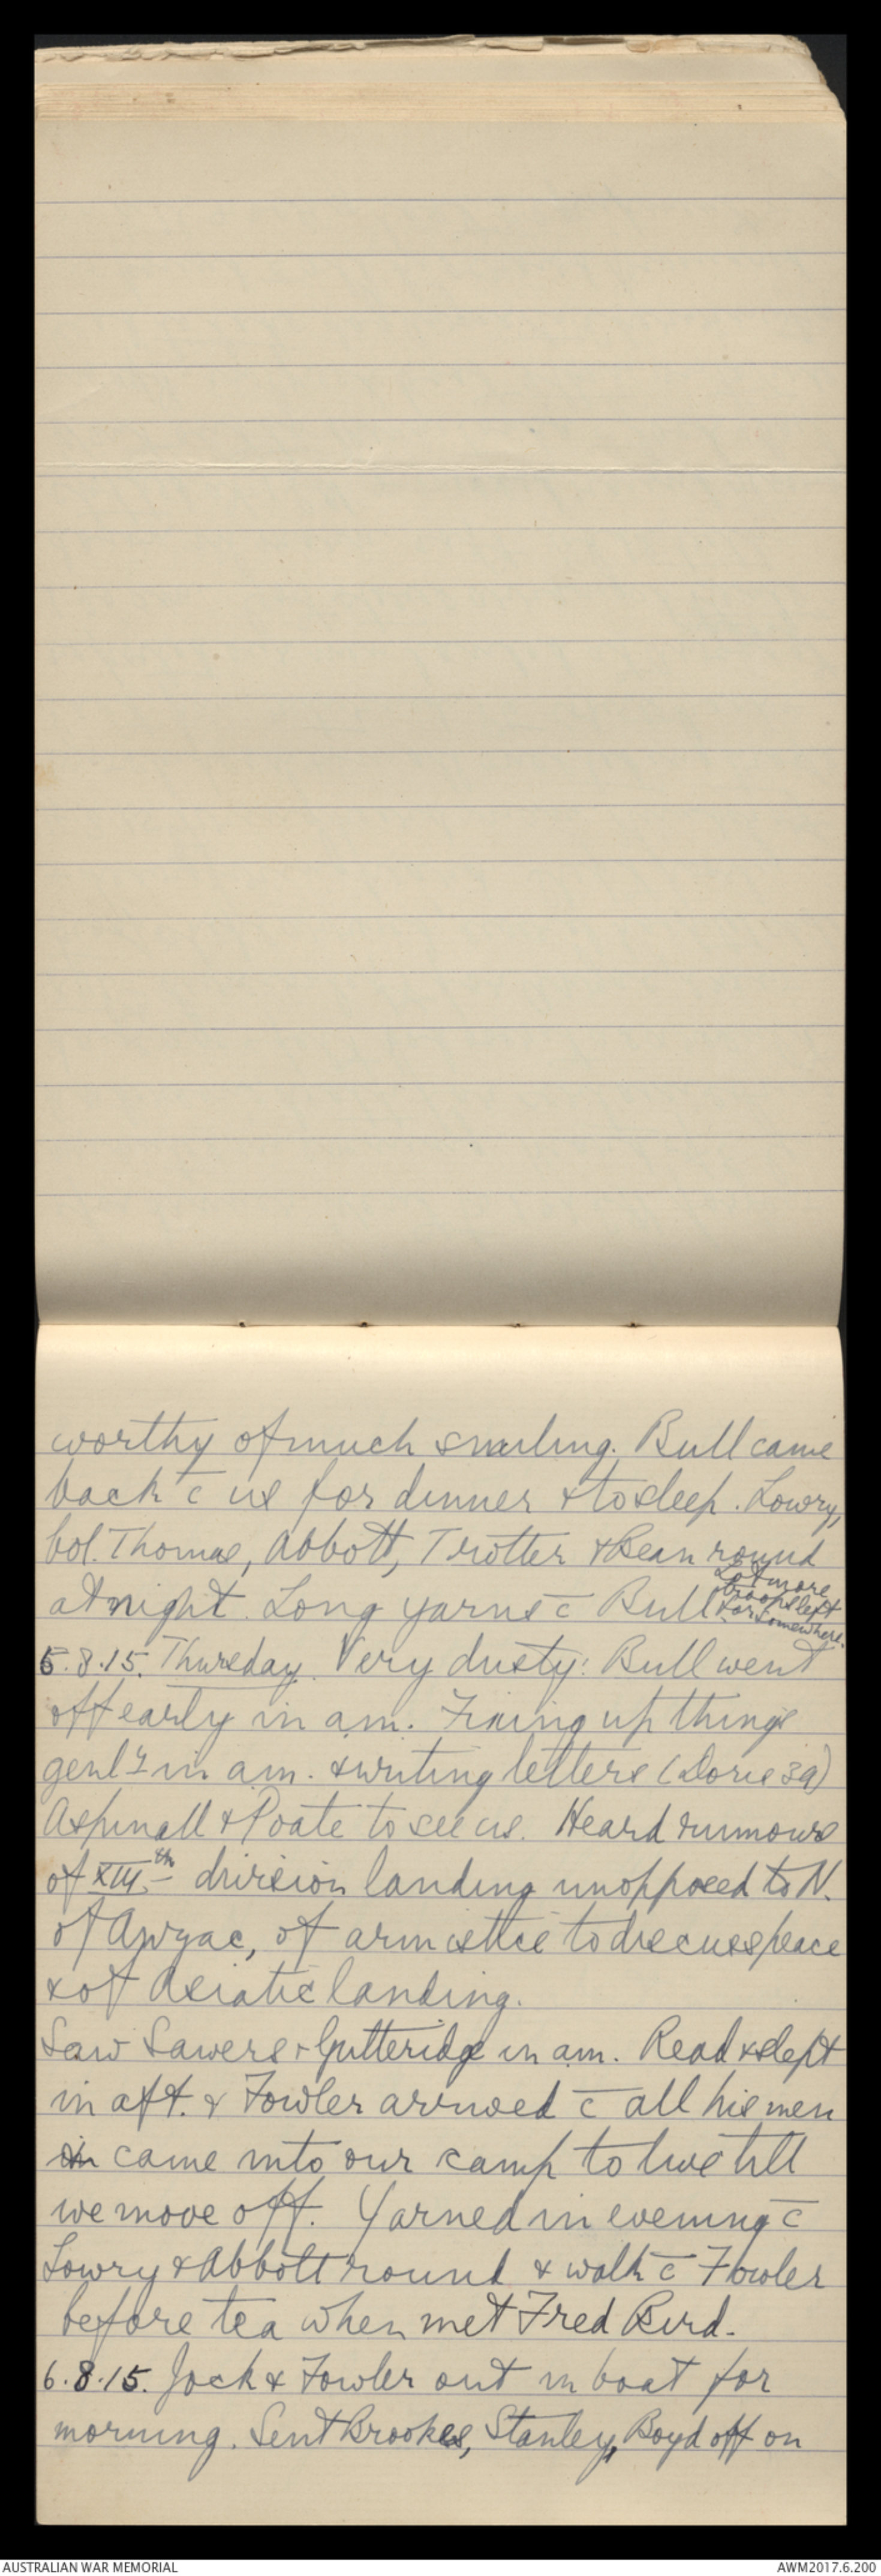 worthy of much smiling. Bull came
back c̄ us for dinner & to sleep. Lowry,
Col. Thomas, Abbott, Trotter & Bean round
at night. Long yarns c̄ Bull. Lot more
troops left
for somewhere.
5.8.15. Thursday. Very dusty: Bull went
off early in am. Fixing up things
genly in am. & writing letters (Dorie 39)
Aspinall & Poate to see us. Heard rumours
of XIIIth division landing unopposed to N.
of Anzac, of armistice to discuss peace
& of Asiatic landing.
Saw Sawers & Gutteridge in am. Read & slept
in aft. & Fowler arrived c̄ all his men
came into our camp to live till
we move off. Yarned in evening c̄
Lowry & Abbott round & walk c̄ Fowler
before tea when met Fred Bird.
6.8.15. Jock & Fowler out in boat for
morning. Sent Brookes, Stanley, Boyd off on
AUSTRALIAN WAR MEMORIAL
AWM2017.6.200